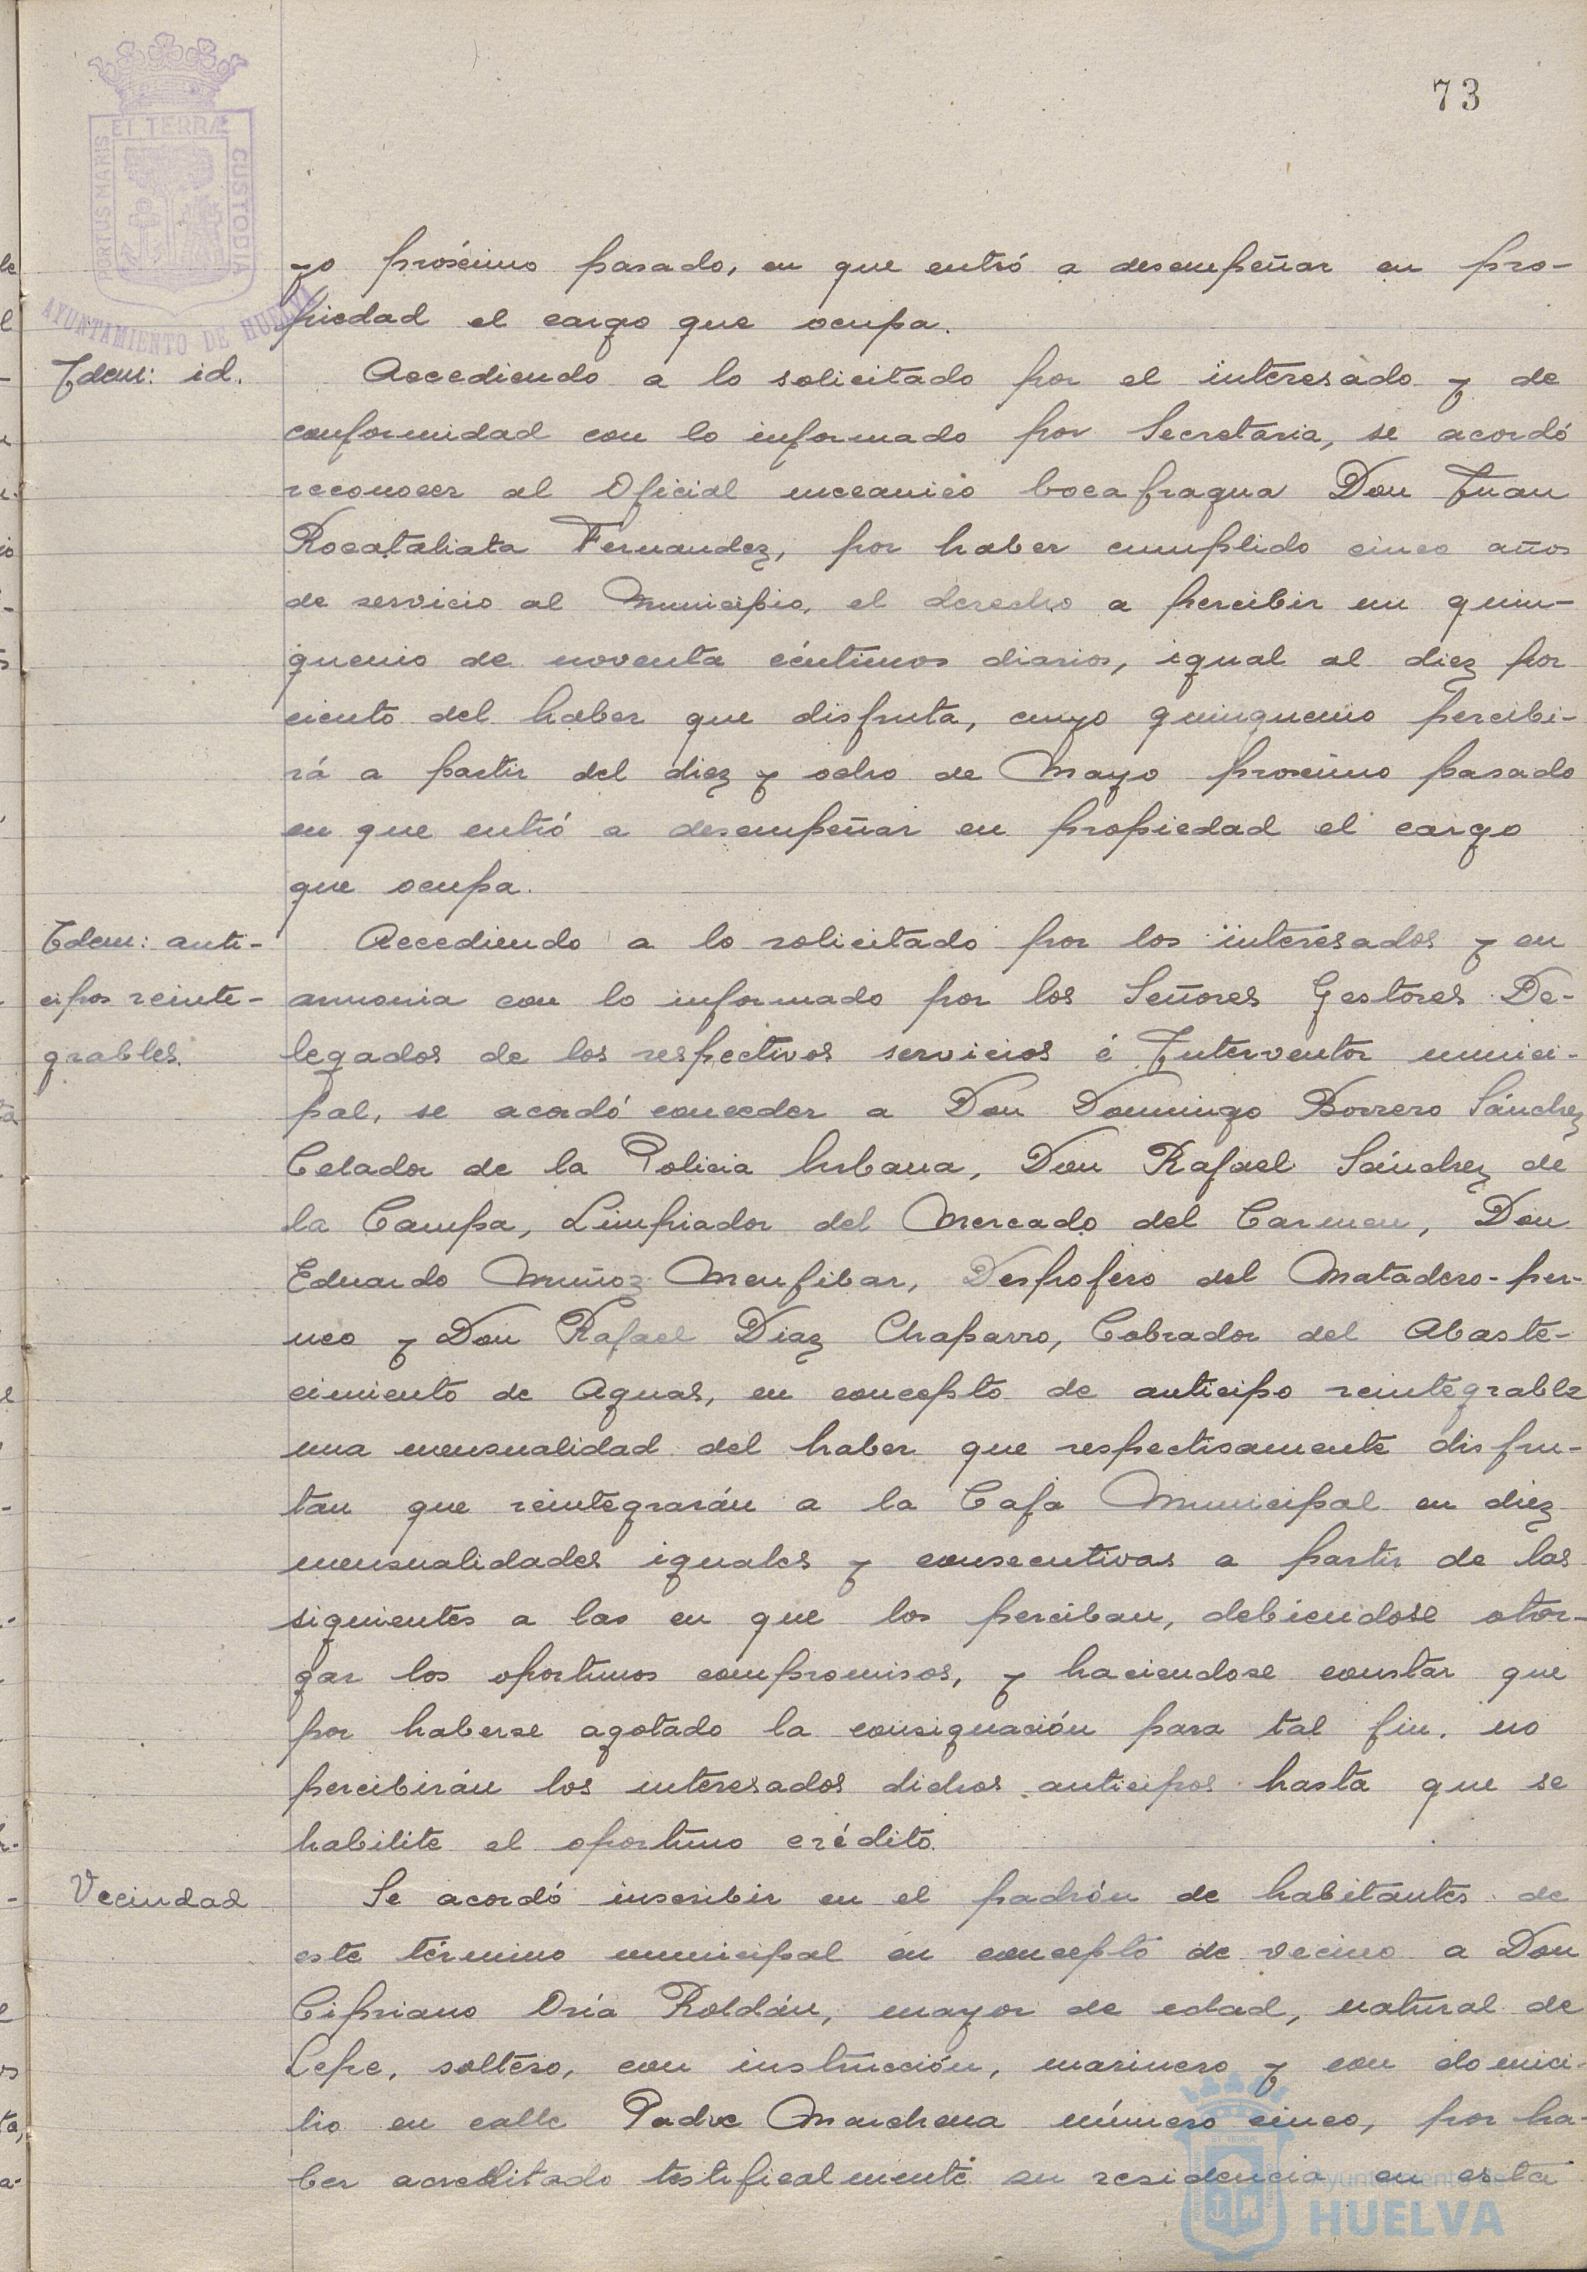 73
ET TERRÆ
PORTUS MARIS
CUSTODIA
AYUNTAMIENTO DE HUELVA
yo próximo pasado, en que entró a desempeñar en pro-
piedad el cargo que ocupa.
Idem: id.
Accediendo a lo solicitado por el interesado y de
conformidad con lo informado por Secretaria, se acordó
reconocer al Oficial mecanico bocafragua Don Juan
Rocataliata Fernandez, por haber cumplido cinco años
de servicio al Municipio, el derecho a percibir un quin-
quenio de noventa céntimos diarios, igual al diez por
ciento del haber que disfruta, cuyo quinquenio percibi-
rá a partir del diez y ocho de Mayo proximo pasado
en que entró a desempeñar en propiedad el cargo
que ocupa.
Idem: anti-
cipos reinte-
grables.
Accediendo a lo solicitado por los interesados y en
armonia con lo informado por los Señores Gestores De-
legados de los respectivos servicios é Interventor munici-
pal, se acordó conceder a Don Domingo Borrero Sánchez
Celador de la Policia Urbana, Don Rafael Sánchez de
la Campa, Limpiador del Mercado del Carmen, Don
Eduardo Muñoz Menfibar, Despojero del Matadero-per-
neo y Don Rafael Diaz Chaparro, Cobrador del Abaste-
cimiento de Aguas, en concepto de anticipo reintegrable
una mensualidad del haber que respectivamente disfru-
tan que reintegrarán a la Caja Municipal en diez
mensualidades iguales y consecutivas a partir de las
siguientes a las en que los perciban, debiendose otor-
gar los oportunos compromisos, y haciendose constar que
por haberse agotado la consignación para tal fin, no
percibirán los interesados dichos anticipos hasta que se
habilite el oportuno crédito.
Vecindad
Se acordó inscribir en el padrón de habitantes de
este término municipal en concepto de vecino a Don
Cipriano Oria Roldán, mayor de edad, natural de
Lepe, soltero, con instrucción, marinero y con domici-
lio en calle Padre Marchena número cinco, por ha-
ber acreditado testificalmente su residencia en esta
Ayuntamiento de
HUELVA